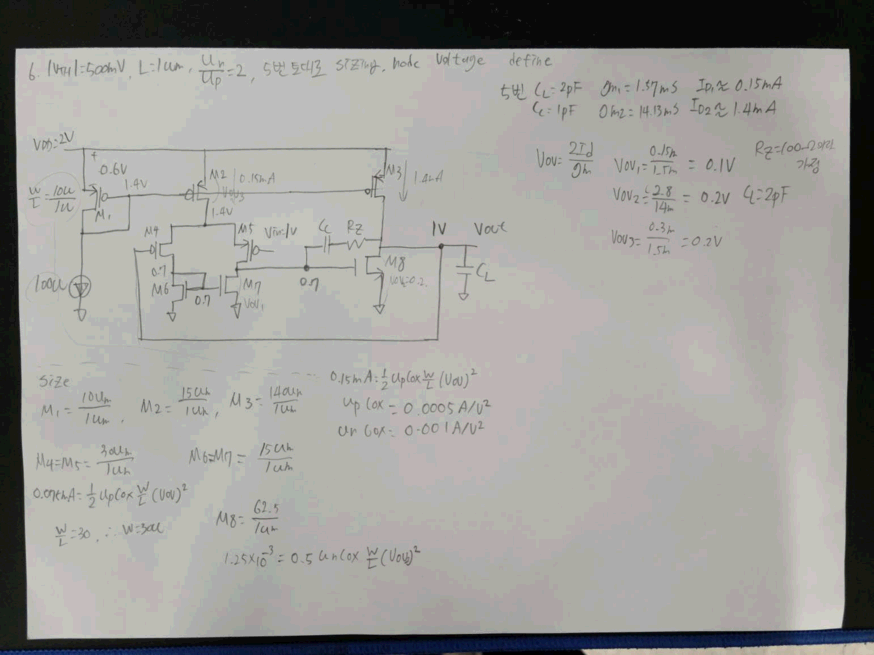 6. |VTH|=500mV, L=1um, Un/Up=2, 5번 토대로 sizing, node voltage define
5번 CL=2pF gm1=1.37mS ID1≈0.15mA
Cc=1pF gm2=14.13mS ID2≈1.4mA
VDD=2V
0.6V
M2
0.15mA
M3
1.4mA
W/L=10u/1u
1.4V
M1
1.4V
M4
M5
Vin=1V
Cc
RZ
1V
Vout
0.7
M6
0.7
M7
VOV1
0.7
M8
CL
100u
VOV=2Id/gm VOV1=0.15m/1.5m=0.1V RZ=100mΩ
VOV2=2.8/14m=0.2V CL=2pF
VOV3=0.3m/1.5m=0.2V
Size
M1=10um/1um, M2=15um/1um, M3=140um/1um
0.15mA=1/2 UpCox W/L (VOV)²
UpCox=0.0005A/V²
UnCox=0.001A/V²
M4=M5=30um/1um M6=M7=15um/1um
0.075mA=1/2 UpCox W/L (VOV)²
W/L=30, ∴ W=30u
M8=62.5/1u
1.25×10⁻³=0.5 UnCox W/L (VOV)²